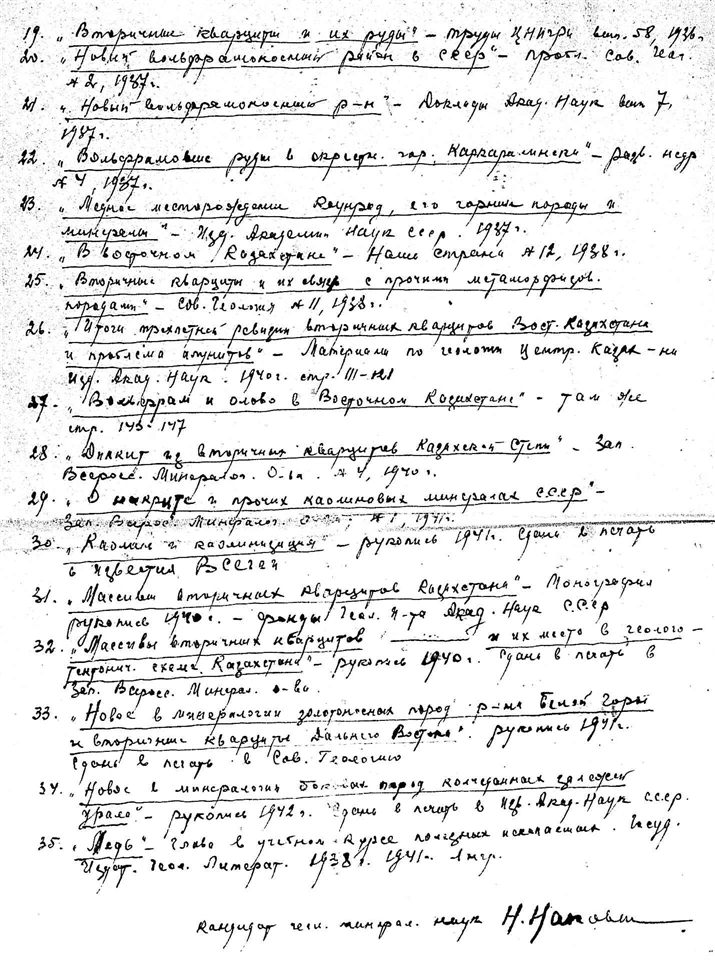 19. „Вторичные кварциты и их руды" – Труды ЦНИГРИ вып. 58, 1936г.
20. „Новый вольфрамоносный район в СССР" – Пробл. Сов. Геол.
№ 2, 1937г.
21. „Новый вольфрамоносный р-н" – Доклады Акад. Наук вып 7,
1937г.
22. „Вольфрамовые руды в окрестн. гор. Каркаралински" – Разв. недр
№ 4, 1937г.
23. „Медное месторождение Коунрад, его горные породы и
минералы" – Изд. Академии Наук СССР. 1937г.
24. „В восточном Казахстане" – Наша страна № 12, 1938г.
25. „Вторичные кварциты и их связь с прочими метаморфизов.
породами" – Сов. Геология № 11, 1938г.
26. „Итоги трехлетней ревизии вторичных кварцитов Вост. Казахстана
и проблема алунитов" – Материалы по геологии Центр. Казах-на
Изд. Акад. Наук. 1940г. стр. 111-121
27. „Вольфрам и олово в Восточном Казахстане" – там же
стр. 143-147
28. „Диккит из вторичных кварцитов Казахской Степи" – Зап.
Всеросс. Минералог. О-ва. № 4, 1940г.
29. „О накрите и прочих каолиновых минералах СССР" –
Зап. Всерос. Минералог. О-ва, № 1, 1941г.
30. „Каолин и каолинизация" – рукопись 1941г. Сдана в печать
в известия ВСЕГЕИ
31. „Массивы вторичных кварцитов Казахстана" – Монография
рукопись 1940г. – Фонды Геол. И-та Акад. Наук СССР
32. „Массивы вторичных кварцитов и их место в геолого-
тектонич. схеме Казахстана" – рукопись 1940г. Сдана в печать в
Зап. Всеросс. Минерал. о-ва.
33. „Новое в минералогии золотоносных пород р-на Белой Горы
и вторичные кварциты Дальнего Востока". рукопись 1941г.
Сдана в печать в Сов. Геологию
34. „Новое в минералогии боковых пород колчеданных залежей
Урала" – рукопись 1942г. Сдана в печать в Изв. Акад. Наук СССР.
35. „Медь" – Глава в учебном курсе полезных ископаемых. Госуд.
Издат. Геол. Литерат. 1938г. 1941г.
кандидат геол. минерал. наук Н. Наковник